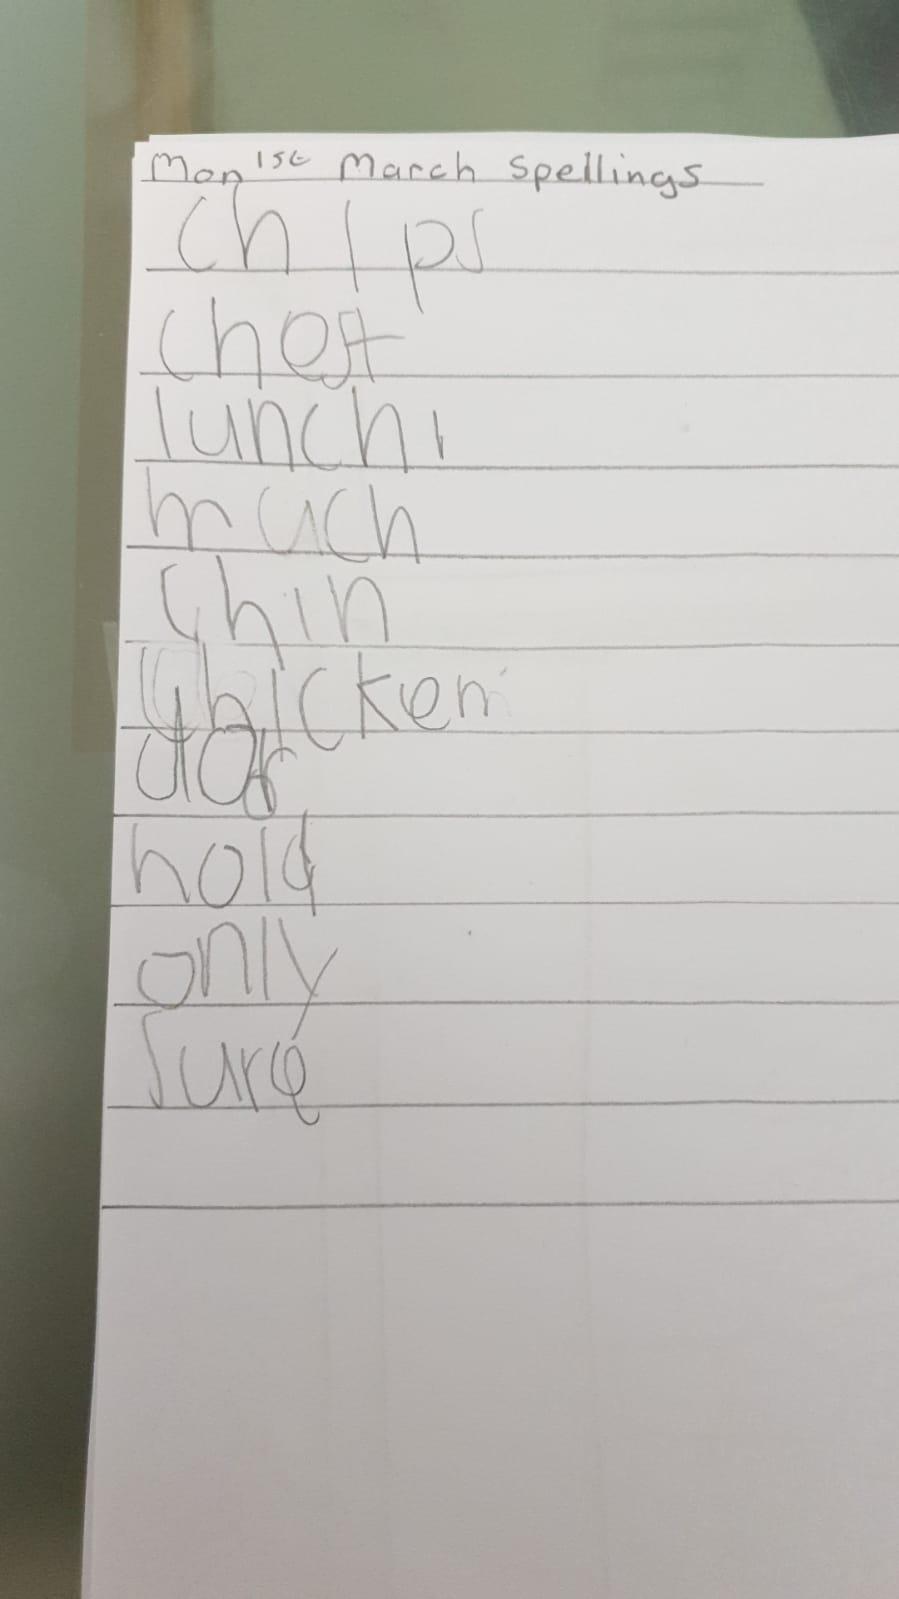 Mon 1st March Spellings
chips
chest
lunch
much
chin
chicken
hold
only
sure